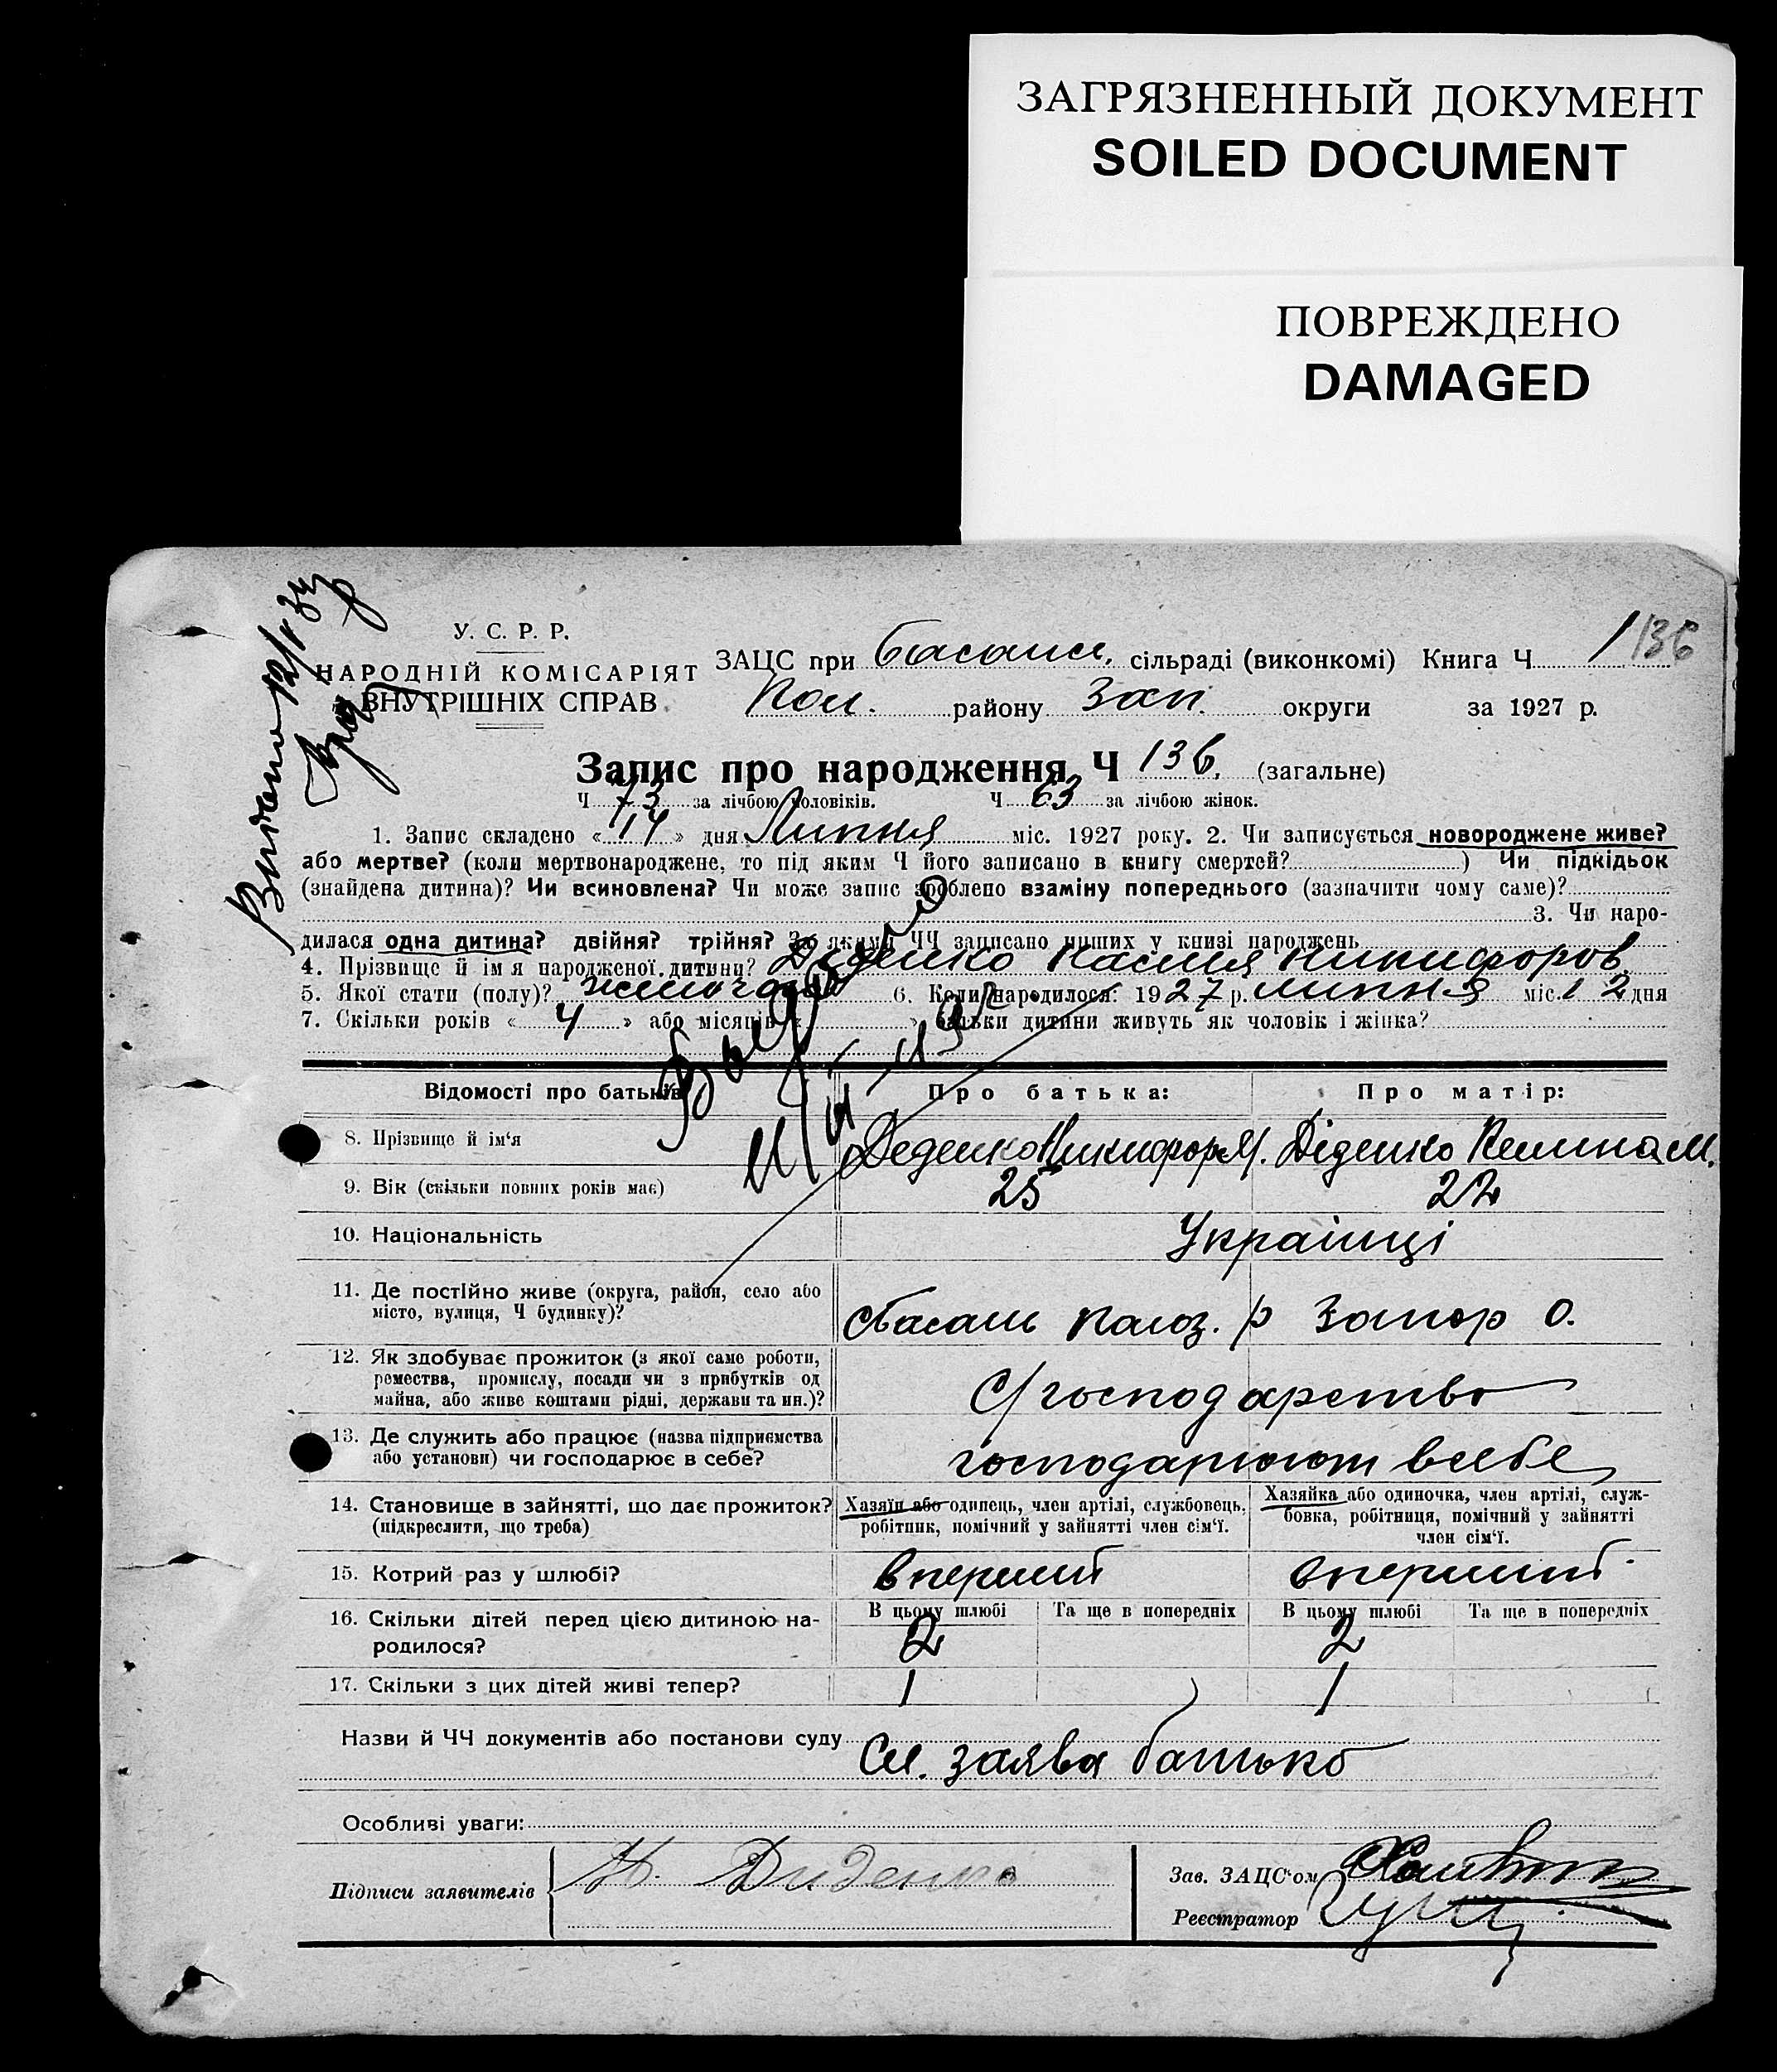 ЗАГРЯЗНЕННЫЙ ДОКУМЕНТ
SOILED DOCUMENT
ПОВРЕЖДЕНО
DAMAGED
У. С. Р. Р.
НАРОДНІЙ КОМІСАРІЯТ
ВНУТРІШНІХ СПРАВ
ЗАЦС при Басанск. сільраді (виконкомі) Книга Ч 1 136
Пол. району Зап. округи за 1927 р.
Запис про народження Ч 136. (загальне)
Ч 73 за лічбою чоловіків. Ч 63 за лічбою жінок.
1. Запис складено « 14 » дня Липня міс. 1927 року. 2. Чи записується новороджене живе?
або мертве? (коли мертвонароджене, то під яким Ч його записано в книгу смертей? ) Чи підкідьок
(знайдена дитина)? Чи всиновлена? Чи може запис зроблено взаміну попереднього (зазначити чому саме)?
3. Чи наро-
дилася одна дитина? двійня? трійня? За якими ЧЧ записано инших у книзі народжень
4. Прізвище й ім'я народженої дитини? Діденко Никифоров
5. Якої стати (полу)? жиноча 6. Коли народилося: 1927 р. липня міс. 12 дня
7. Скільки років « 4 » або місяців « » батьки дитини живуть як чоловік і жінка?
Відомості про батьків Про батька: Про матір:
8. Прізвище й ім'я Деденко Никифор Діденко М.
9. Вік (скільки повних років має) 25 22
10. Національність Українці
11. Де постійно живе (округа, район, село або
місто, вулиця, Ч будинку)? с Басань Полог. р Запор о.
12. Як здобуває прожиток (з якої саме роботи,
ремества, промислу, посади чи з прибутків од
майна, або живе коштами рідні, держави та ин.)? С/господарство
13. Де служить або працює (назва підприємства
або установи) чи господарює в себе? господарюют в себе
14. Становище в зайнятті, що дає прожиток?
(підкреслити, що треба)
Хазяїн або одинець, член артілі, службовець,
робітник, помічний у зайнятті член сім'ї.
Хазяйка або одиночка, член артілі, служ-
бовка, робітниця, помічний у зайнятті
член сім'ї.
15. Котрий раз у шлюбі? вперший вперший
16. Скільки дітей перед цією дитиною на-
родилося?
В цьому шлюбі Та ще в попередніх В цьому шлюбі Та ще в попередніх
2 2
17. Скільки з цих дітей живі тепер? 1 1
Назви й ЧЧ документів або постанови суду
Сл. заява батько
Особливі уваги:
Підписи заявителів Н. Диденко
Зав. ЗАЦС'ом
Реєстратор